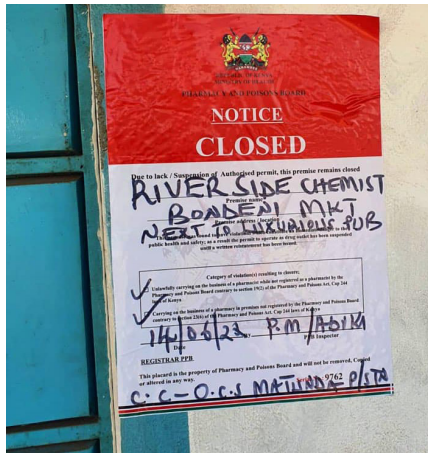 REPUBLIC OF KENYA
MINISTRY OF HEALTH
PHARMACY AND POISONS BOARD
NOTICE
CLOSED
Due to lack / Suspension of Authorised permit, this premise remains closed
RIVERSIDE CHEMIST
Premise name
BONDENI MKT
Premise address / location
NEXT TO LUXURIOUS PUB
public health and safety; as a result the permit to operate as drug outlet has been suspended
until a written reinstatement has been issued.
Category of violation(s) resulting to closure;
Unlawfully carrying on the business of a pharmacist while not registered as a pharmacist by the
Pharmacy and Poisons Board contrary to section 19(2) of the Pharmacy and Poisons Act, Cap 244
laws of Kenya
Carrying on the business of a pharmacy in premises not registered by the Pharmacy and Poisons Board
contrary to section 23(6) of the Pharmacy and Poisons Act, Cap 244 laws of Kenya
14/06/23 P.M/ADIKA
Date PPB Inspector
REGISTRAR PPB
This placard is the property of Pharmacy and Poisons Board and will not be removed, Copied
or altered in any way.
9762
C.C - O.C.S MATUNDA P/STA